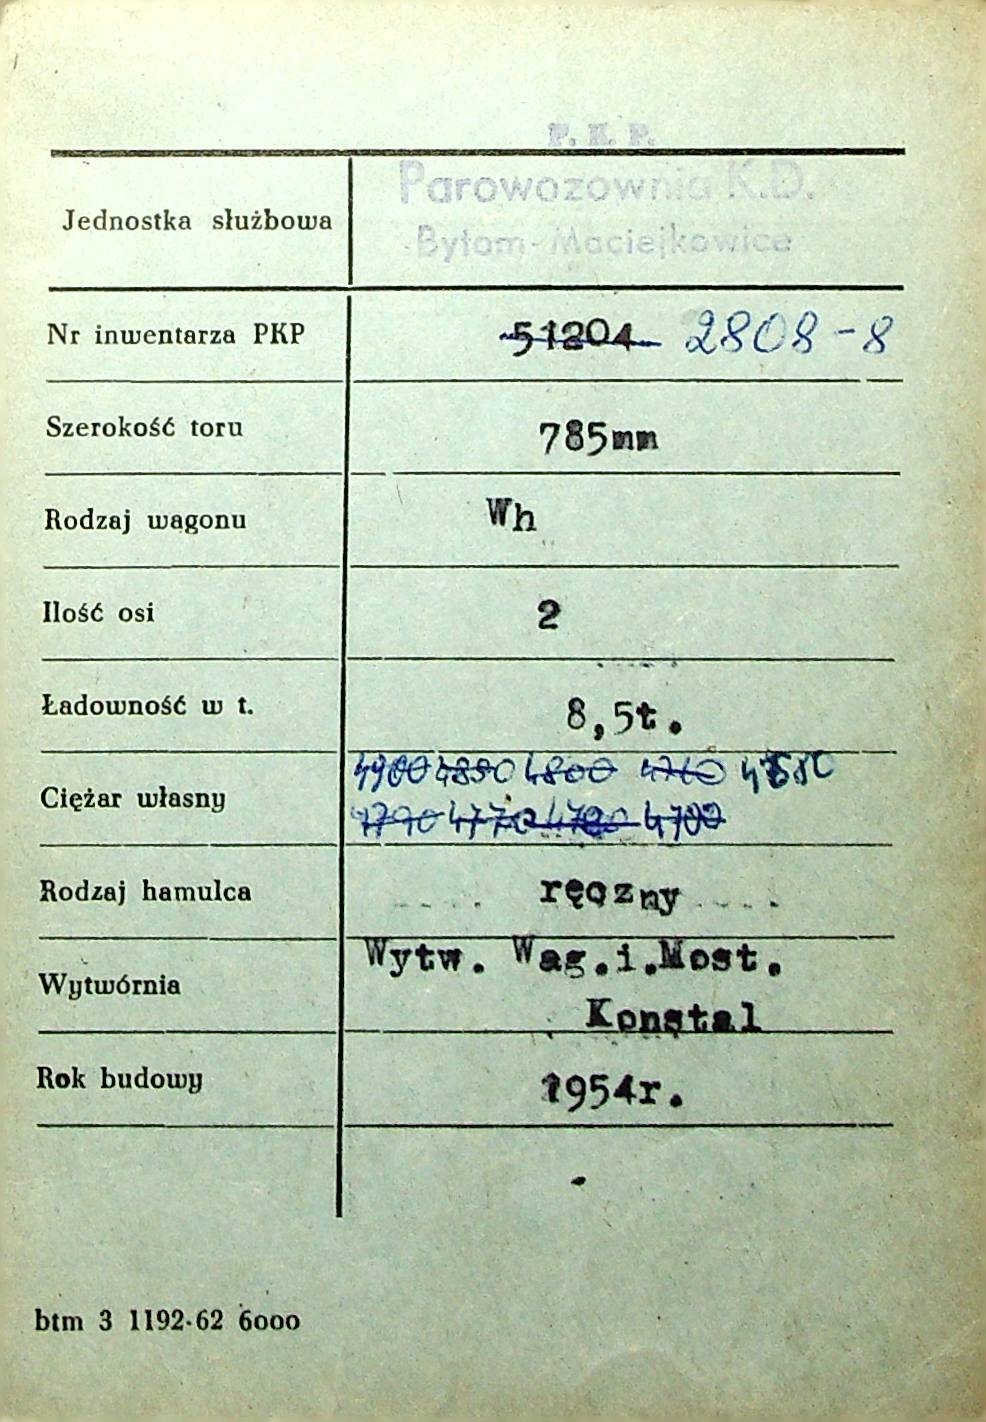 P. K. P.
Parowozownia K.D.
Jednostka służbowa
Bytom-Maciejkowice
Nr inwentarza PKP 51204 2808-8
Szerokość toru 785mm
Rodzaj wagonu Wh
Ilość osi 2
Ładowność w t. 8,5t.
4900 4850 4800
Ciężar własny
4790 4770 4700
Rodzaj hamulca ręczny
Wytw. Wag.i.Most.
Wytwórnia
Konstal
Rok budowy 1954r.
btm 3 1192-62 6000